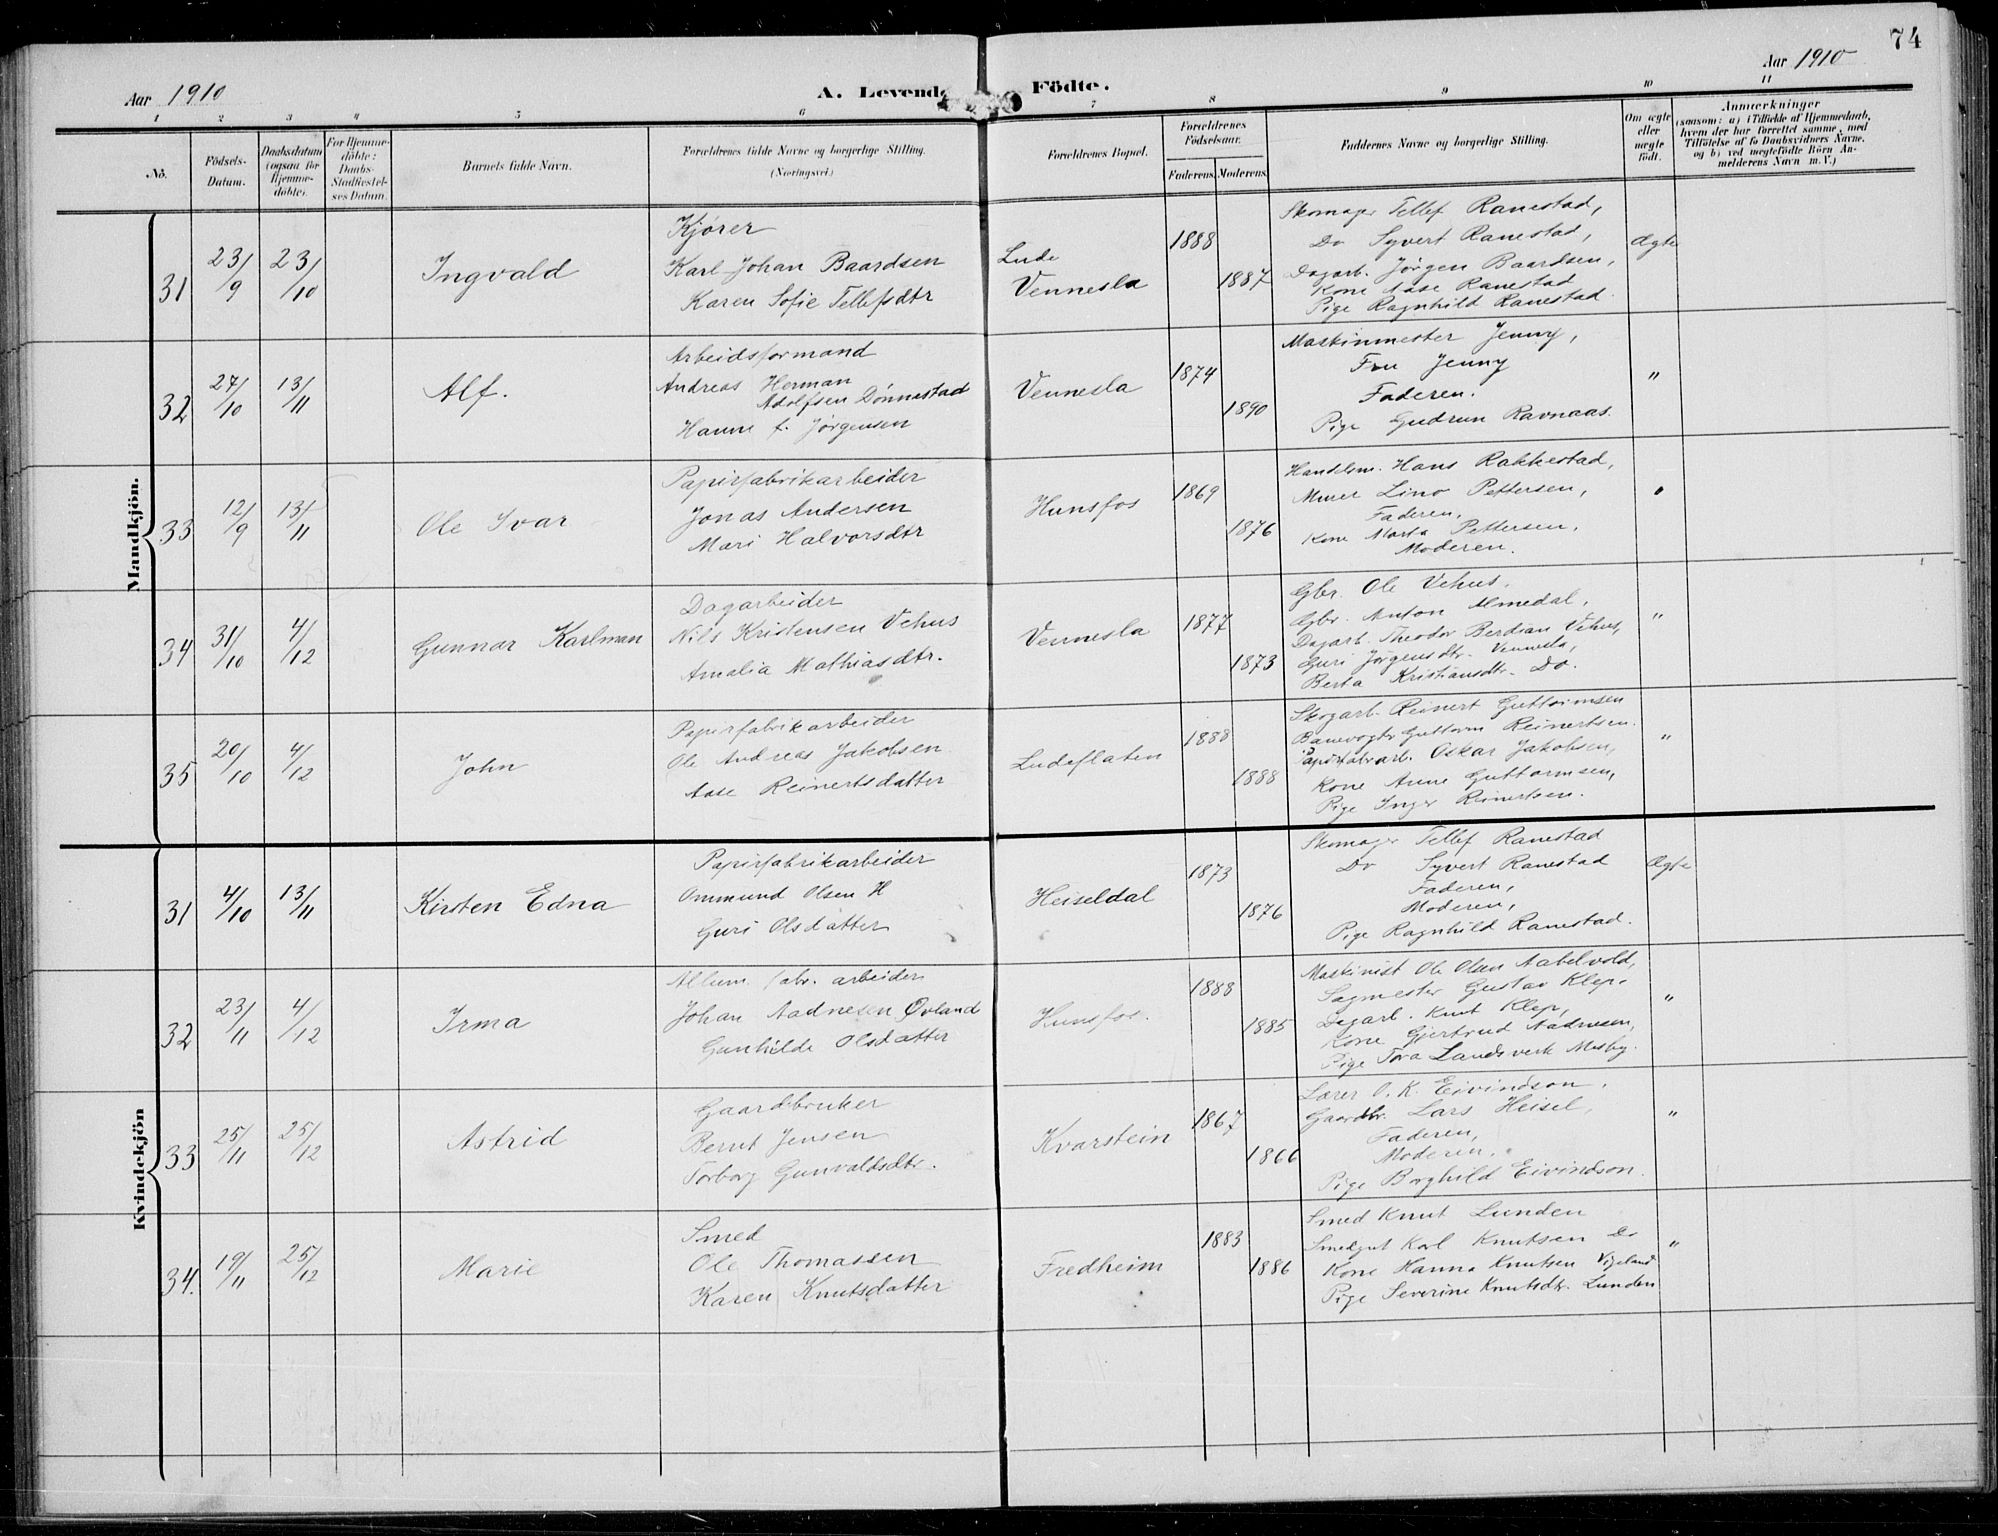 74
Aar 1910
A. Levende Födte.
Aar 1910
1 2 3 4 5 6 7 8 9 10 11
No.
Födsels-Datum.
Daabsdatum (ogsaa for Hjemmedöbte).
For Hjemmedöbte: Daabs-Stadfæstelses Datum.
Barnets fulde Navn.
Forældrenes fulde Navne og borgerlige Stilling.
(Næringsvei.)
Forældrenes Bopæl.
Forældrenes Födselsaar.
Faderens. Moderens.
Faddernes Navne og borgerlige Stilling.
Om ægte eller uægte födt.
Anmærkninger
(saasom: a) i Tilfælde af Hjemmedaab,
hvem der har forrettet samme, med
Tilföielse af to Daabsvidners Navne,
og b) ved uægtefödte Börn Anmelderens Navn m. V.)
Mandkjön.
31 23/9 23/10 Ingvald
Kjører
Karl Johan Baardsen
Karen Sofie Tellefsdtr
Lude
Vennesla
1888
1887
Skomager Tellef Ranestad,
Do Syvert Ranestad,
Dagarb. Jørgen Baardsen,
Kone Aase Ranestad
Pige Ragnhild Ranestad.
Ægte
32 27/10 13/11 Alf.
Arbeidsformand
Andreas Herman
Adolfsen Dønnestad
Hanne f. Jørgensen
Vennesla
1874
1890
Maskinmester Jenny,
Fru Jenny
Faderen.
Pige Gudrun Ravnaas.
"
33 12/9 13/11 Ole Ivar
Papirfabrikarbeider
Jonas Andersen
Mari Halvorsdtr
Hunsfos
1869
1876
Handelsm. Hans Rakkestad,
Murer Lino Pettersen,
Faderen,
Kone Marta Pettersen,
Moderen.
"
34 31/10 4/12 Gunnar Karlman
Dagarbeider
Nils Kristensen Vehus
Amalia Mathiasdtr.
Vennesla
1877
1873
Gbr. Ole Vehus.
Gbr. Anton Almedal,
Dagarb. Theodor Berdian Vehus,
Guri Jørgensdtr. Vennesla,
Berta Kristiansdtr. Do.
"
35 20/10 4/12 John
Papirfabrikarbeider
Ole Andreas Jakobsen
Aase Reinertsdatter
Ludeflaten
1888
1888
Skogarb. Reinert Guttormsen
Banevogtr Guttorm Reinertsen.
Papirfabrarb. Oskar Jakobsen,
Kone Anne Guttormsen,
Pige Inger Reinertsen.
"
Kvindekjön
31 4/10 13/11 Kirsten Edna
Papirfabrikarbeider
Ommund Olsen H
Guri Olsdatter
Heiseldal
1873
1876
Skomager Tellef Ranestad
Do Syvert Ranestad
Faderen,
Moderen,
Pige Ragnhild Ranestad.
Ægte
32 23/11 4/12 Irma
Allum. fabr. arbeider
Johan Aadnesen Øvland
Gunhilde Olsdatter
Hunsfos.
1888
1885
Maskinist Ole Olsen Aabelvold,
Sagmester Gustav Klep.
Dagarb. Knut Klep,
Kone Gjertrud Aadnesen,
Pige Tora Landsverk Mosby.
"
33 25/11 25/12 Astrid
Gaardbruker
Bernt Jensen
Torborg Gunvaldsdtr.
Kvarstein
1867
1866
Lærer O. K. Eivindson.
Gaardbr. Lars Heisel,
Faderen,
Moderen.
Pige Borghild Eivindson.
"
34. 19/11 25/12 Marie
Smed
Ole Thomassen
Karen Knutsdatter
Fredheim
1883
1886
Smed Knut Lunden
Smedgut Karl Knutsen Do
Kone Hanna Knutsen Vigeland
Pige Severine Knutsdtr. Lunden
"